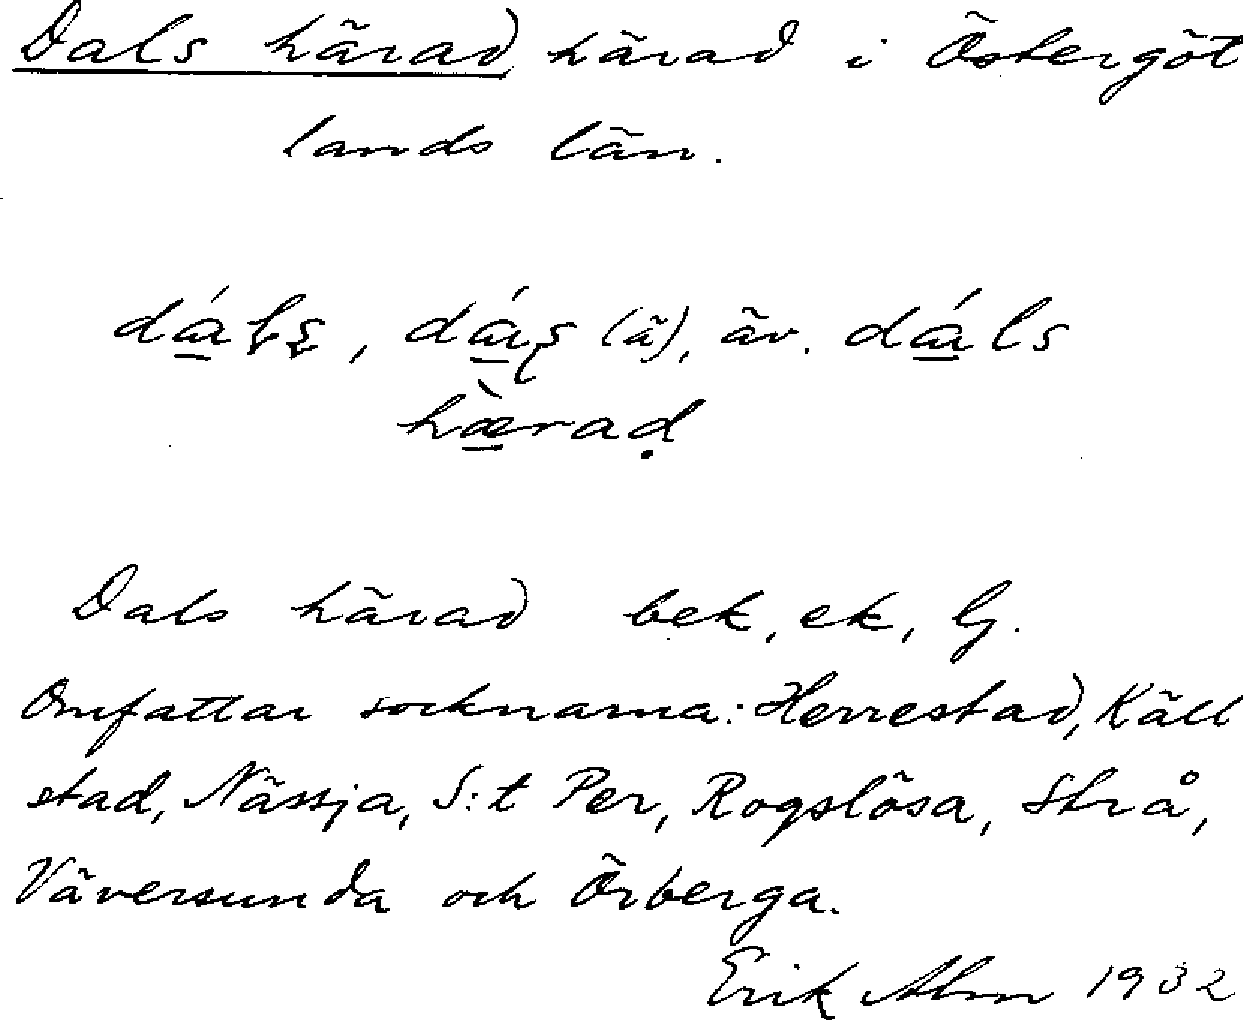 Dals härad härad i Östergöt
lands län.
dálş, dáş (ä), äv. dáls
hæ̀rad
Dals härad bek, ek, G.
Omfattar socknarna: Herrestad, Käll
stad, Nässja, S:t Per, Rogslösa, Strå,
Väversunda och Örberga.
Erik Abm 1932